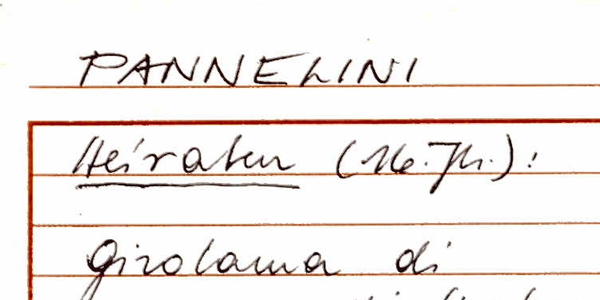 PANNELINI
Heiraten (16. Jh.):
Girolama di